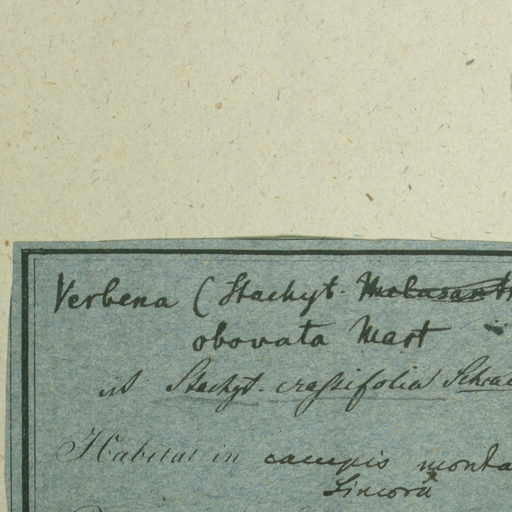 Verbena (Stachyt.
obovata Mart
est Stachyt. crassifolia Schrad
Habitat in campis monta
Sincorá